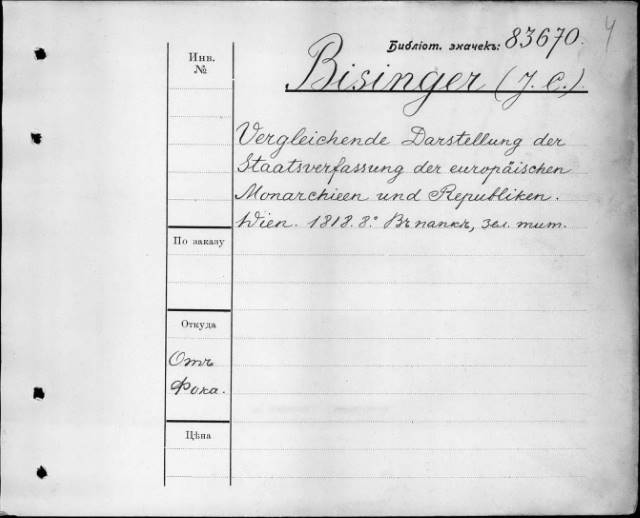 Библіот. значекъ: 83670. 4
Инв.
№
Bisinger (J. C.)
Vergleichende Darstellung der
Staatsverfassung der europäischen
Monarchieen und Republiken.
Wien. 1818. 8.° Въ папкѣ, зел. тит.
По заказу
Откуда
Отъ
Фока.
Цѣна